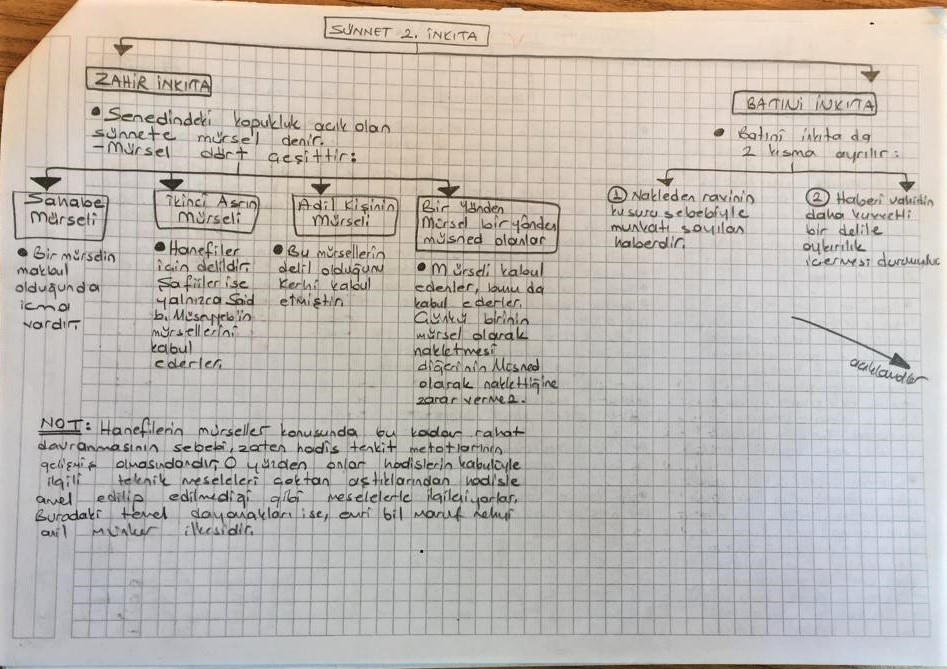 SÜNNET 2. İNKITA
ZAHİR İNKITA
• Senedindeki kopukluk açık olan
sünnete mürsel denir.
- Mürsel dört çeşittir:
Sahabe
Mürseli
• Bir mürselin
makbul
olduğunda
icma
vardır.
İkinci Asrın
Mürseli
• Hanefiler
için delildir.
Şafiiler ise
yalnızca Said
b. Müseyyeb'in
mürsellerini
kabul
ederler.
Adil Kişinin
Mürseli
• Bu mürsellerin
delil olduğunu
Kerhi kabul
etmiştir.
Bir Yönden
Mürsel bir yönden
müsned olanlar
• Mürseli kabul
edenler, bunu da
kabul ederler.
Çünkü birinin
mürsel olarak
nakletmesi
diğerinin Müsned
olarak naklettiğine
zarar vermez.
BATINİ İNKITA
• Batıni inkıta da
2 kısma ayrılır:
1 Nakleden ravinin
kusuru sebebiyle
munkatı sayılan
haberdir.
2 Haberi vahidin
daha kuvvetli
bir delile
aykırılık
içermesi durumudur
açıklandılar
NOT: Hanefilerin mürseller konusunda bu kadar rahat
davranmasının sebebi, zaten hadis tenkit metotlarının
gelişmiş olmasındandır. O yüzden onlar hadislerin kabulüyle
ilgili teknik meseleleri çoktan aştıklarından hadisle
amel edilip edilmediği gibi meselelerle ilgileniyorlar.
Buradaki temel dayanakları ise, emri bil maruf nehyi
anil münker ilkesidir.